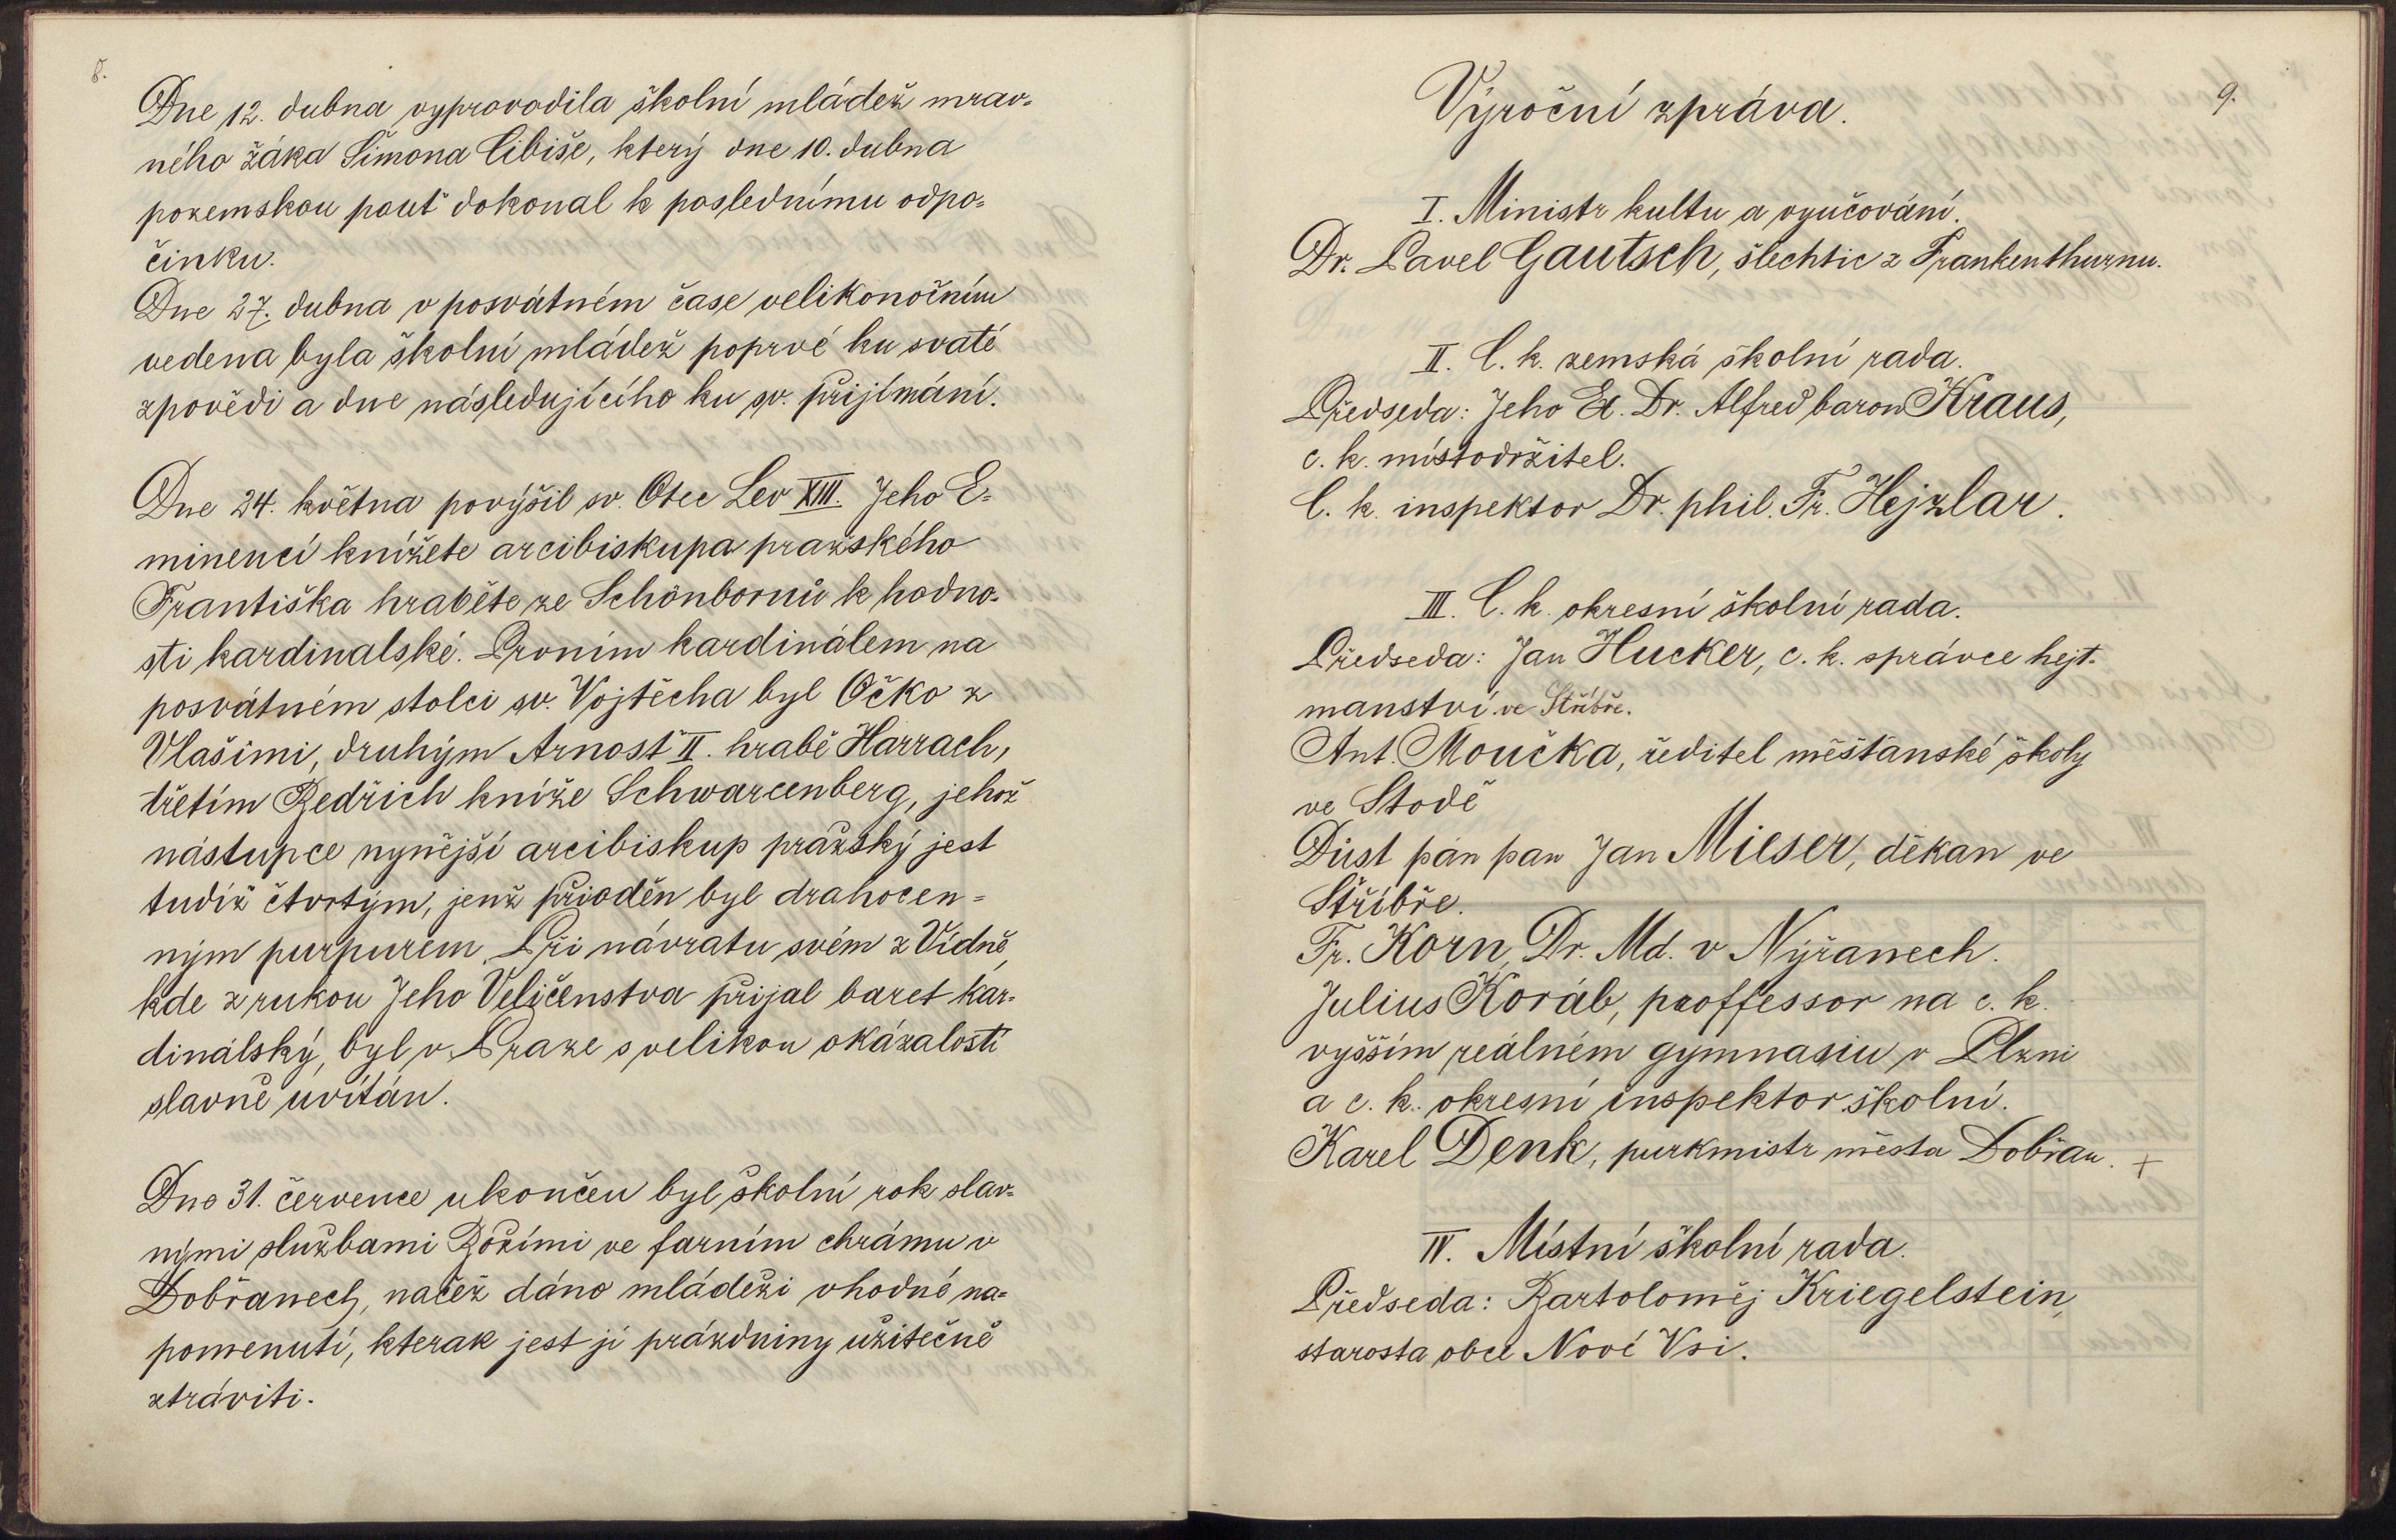 8.
Dne 12. dubna vyprovodila školní mládež mrav-
ného žáka Šimona Cibiše, který dne 10. dubna
pozemskou pouť dokonal k poslednímu odpo-
činku.
Dne 27. dubna v posvátném čase velikonočním
vedena byla školní mládež poprvé ku svaté
zpovědi a dne následujícího ku sv. přijímání.
Dne 24. května povýšil sv. Otec Lev XIII. Jeho E-
minencí knížete arcibiskupa pražského
Františka hraběte ze Schönbornů k hodno-
sti kardinalské. Prvním kardinálem na
posvátném stolci sv. Vojtěcha byl Očko z
Vlašimi, druhým Arnošt II. hrabě Harrach,
třetím Bedřich kníže Schwarcenberg, jehož
nástupce nynější arcibiskup pražský jest
tudíž čtvrtým, jenž přioděn byl drahocen-
ným purpurem. Při návratu svém z Vídně,
kde z rukou Jeho Veličenstva přijal baret kar-
dinálský, byl v Praze s velikou okázalostí
slavně uvítán.
Dne 31. července ukončen byl školní rok slav-
nými službami Božími ve farním chrámu v
Dobřanech, načež dáno mládeži vhodné na-
pomenutí, kterak jest jí prázdniny užitečně
ztráviti.
9.
Výroční zpráva.
I. Ministr kultu a vyučování.
Dr. Pavel Gautsch, šlechtic z Frankenthurnu.
II. C. k. zemská školní rada.
Předseda: Jeho Ex. Dr. Alfred baron Kraus,
c. k. místodržitel.
C. k. inspektor Dr. phil. Fr. Hejzlar.
III. C. k. okresní školní rada.
Předseda: Jan Hucker, c. k. správce hejt-
manství ve Stříbře.
Ant. Moučka, ředitel měšťanské školy
ve Stodě
Důst pán pan Jan Mieser, děkan ve
Stříbře.
Fr. Korn, Dr. Md. v Nýřanech.
Julius Koráb, proffessor na c. k.
vyšším reálném gymnasiu v Plzni
a c. k. okresní inspektor školní.
Karel Denk, purkmistr města Dobřan. +
IV. Místní školní rada.
Předseda: Bartoloměj Kriegelstein,
starosta obce Nové Vsi.